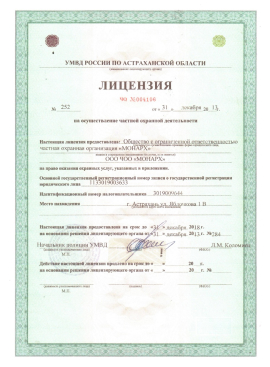 УМВД РОССИИ ПО АСТРАХАНСКОЙ ОБЛАСТИ
ЛИЦЕНЗИЯ
№ 252 от « 31 » декабря 20 13 г.
на осуществление частной охранной деятельности
Настоящая лицензия предоставлена Общество с ограниченной ответственностью
частная охранная организация «МОНАРХ»
ООО ЧОО «МОНАРХ»
на право оказания охранных услуг, указанных в приложении.
Основной государственный регистрационный номер записи о государственной регистрации
юридического лица
Идентификационный номер налогоплательщика
Место нахождения г. Астрахань, ул.
Настоящая лицензия предоставлена на срок до « 31 » декабря 2018 г.
на основании решения лицензирующего органа от « 31 » декабря 2013 г. №
Начальник полиции УМВД
М.П.
Действие настоящей лицензии продлено на срок до « » 20 г.
на основании решения лицензирующего органа от « » 20 г.
М.П.